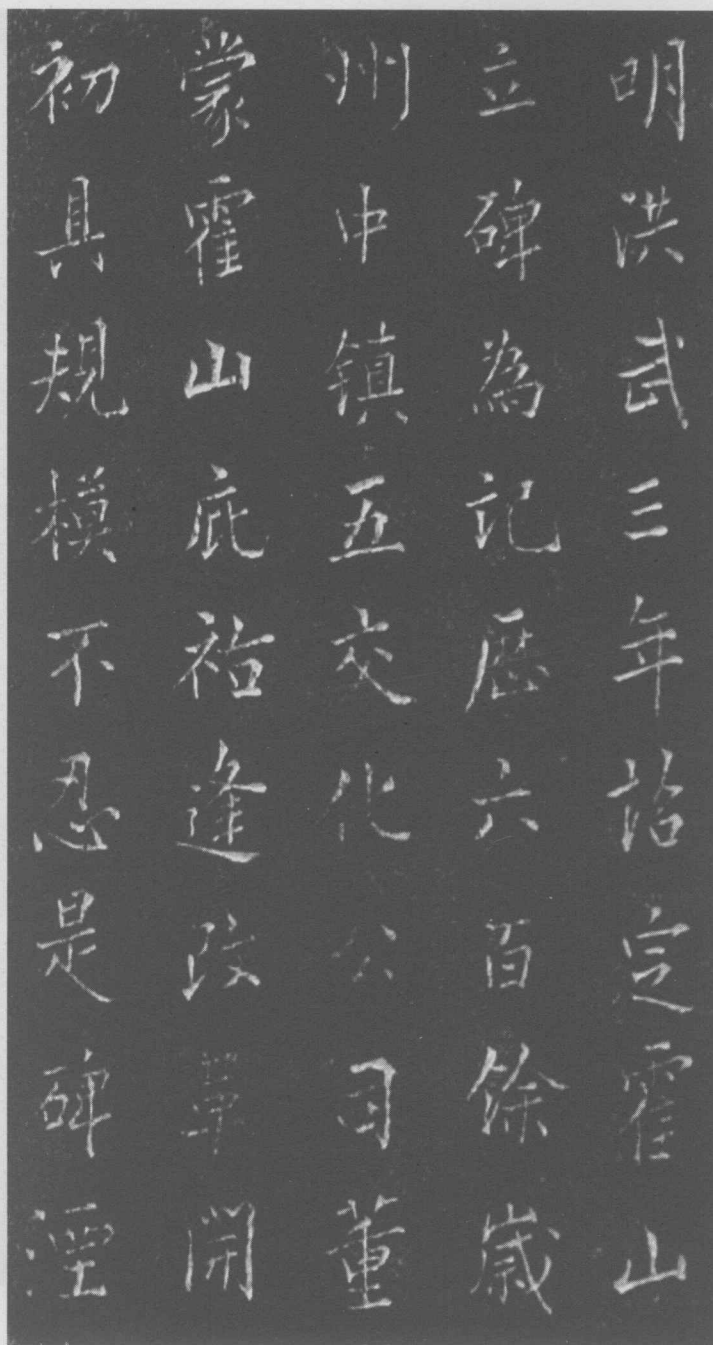 明洪武三年詔定霍山
立碑為記歷六百餘歲
州中鎮五交化公司董
蒙霍山庇祐逢改革開
初具規模不忍是碑湮